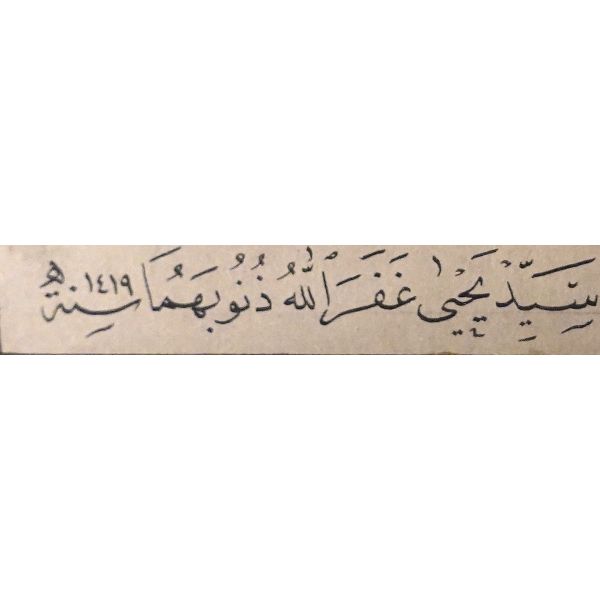 سَيِّدْ يَحْيٰى غَفَرَ اللّٰهُ ذُنُوبَهُمَا سنة ١٤١٩ هـ